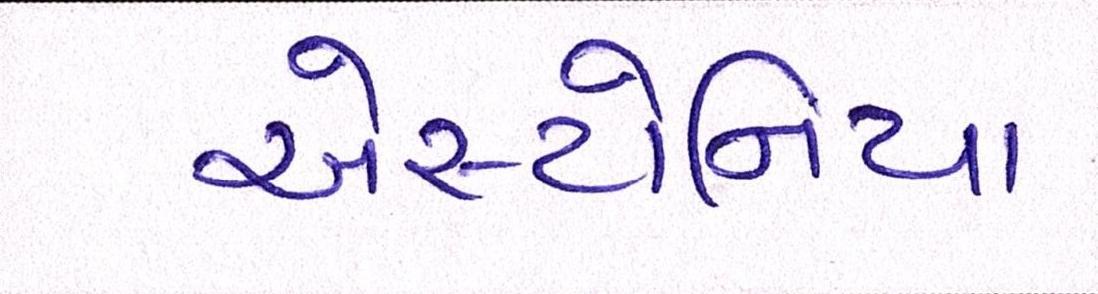 એસ્ટોનિયા